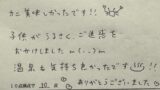 カニ美味しかったです!!
子供がうるさく、ご迷惑を
おかけしました m(._.)m
温泉も気持ち良かったです!!
10点満点で 10 点 ありがとうございました